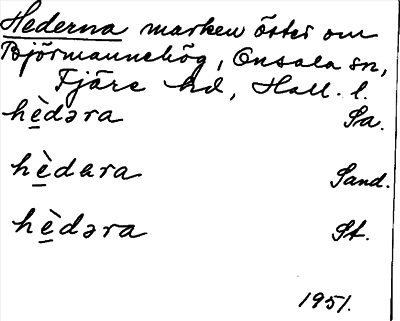 Hederna marken öster om
Björmannehög, Onsala sn,
Fjäre hd, Hall. l.
hè̲dəra Sa.
hè̲dara Sand.
hè̲dəra St.
1951.